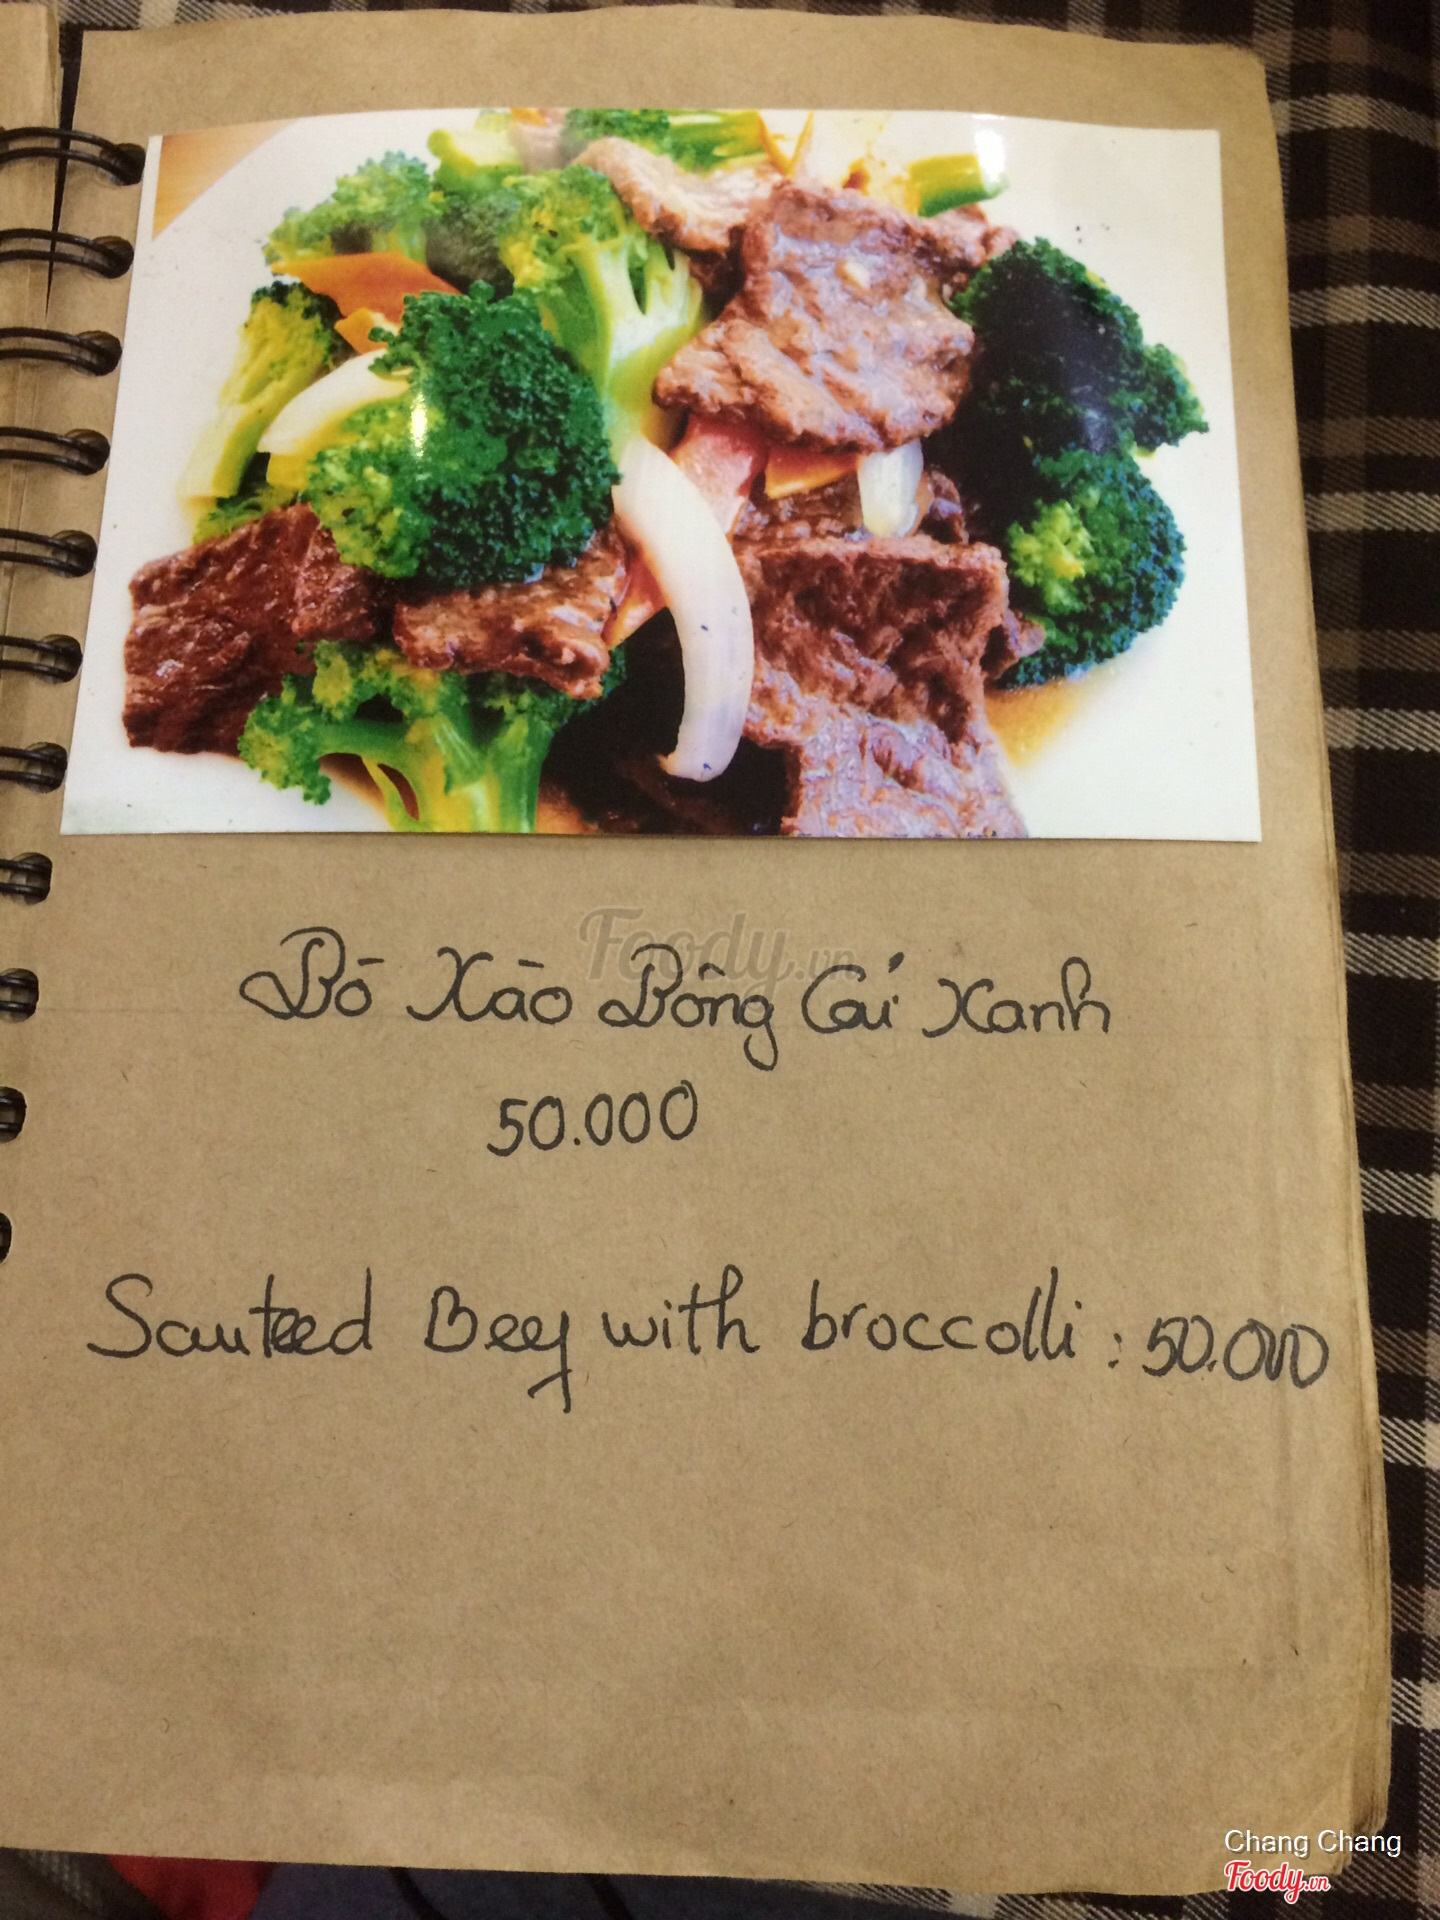 Foody.vn
Bò Xào Bông Cải Xanh
50.000
Sauteed Beef with broccolli : 50.000
Chang Chang
Foody.vn